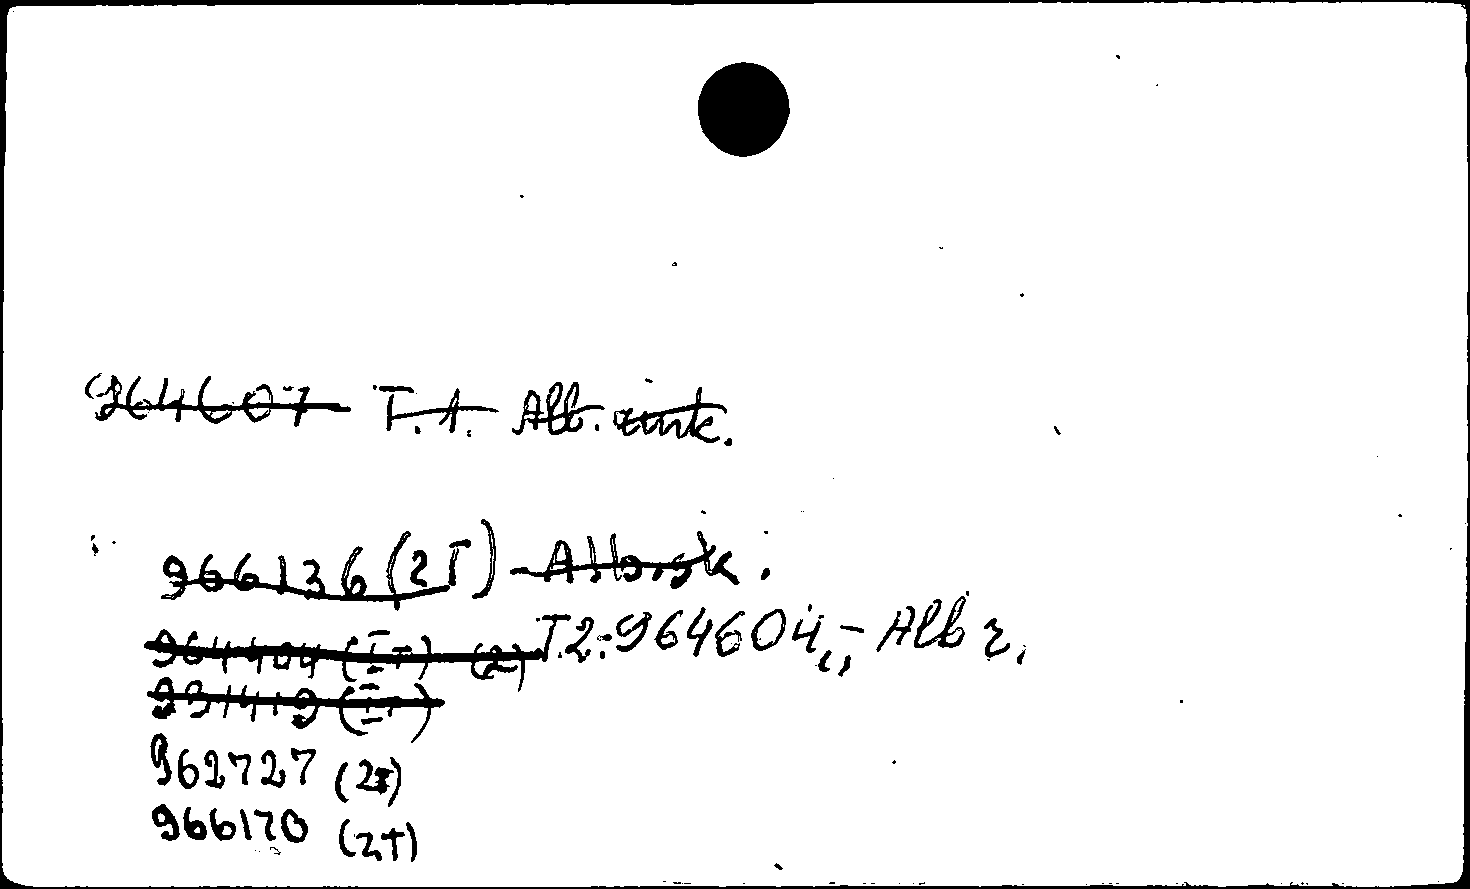 964607 T. 1. Alb. zink.
966136 (2T) - Alb. sk.
964404 (IT) (2) T.2:964604,- Alb z.
991419 (IT)
962727 (2T)
966170 (2T)